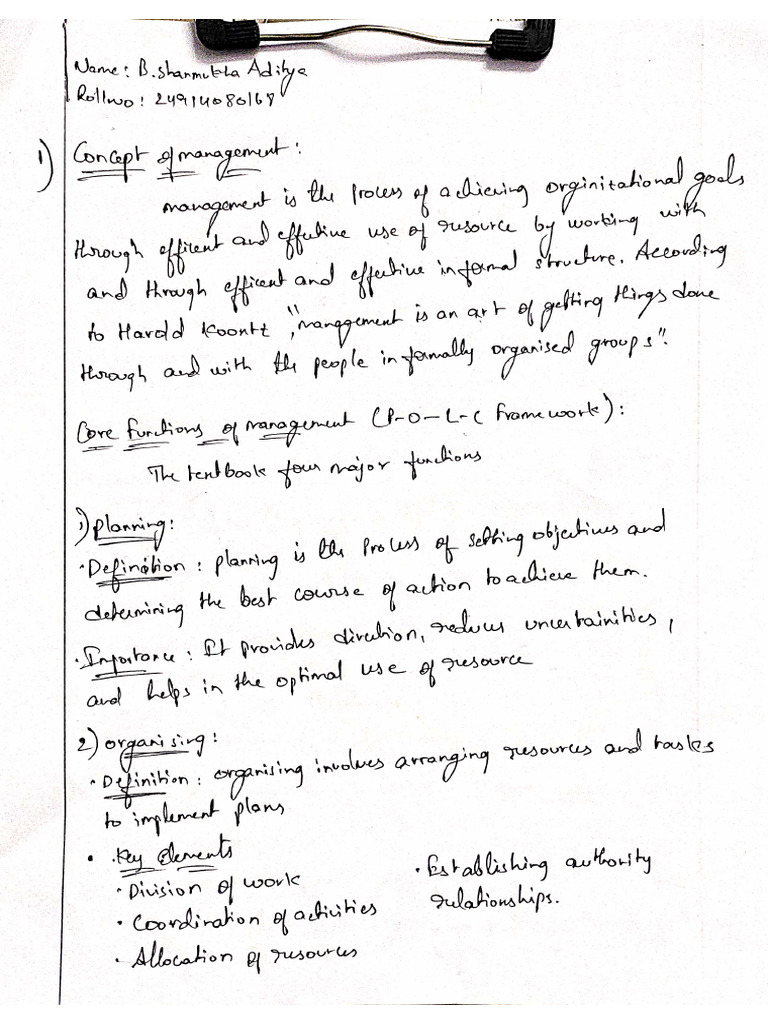 Name: B. Sharmukha Aditya
Rollno: 24914080168
1) Concept of management:
management is the process of achieving orginizational goals
through efficent and effective use of resource by working with
and through efficent and effective informal structure. According
to Harold Koontz, "management is an art of getting things done
through and with the people in formally organised groups".
Core functions of management (P-O-L-C framework):
The textbook four major functions
1) planning:
• Definition: planning is the process of setting objectives and
determining the best course of action to achieve them.
• Importance: It provides direction, reduces uncertainities,
and helps in the optimal use of resource
2) organising:
• Definition: organising involves arranging resources and tasks
to implement plans
• Key elements
• Division of work
• Coordination of activities
• Allocation of resources
• Establishing authority
relationships.